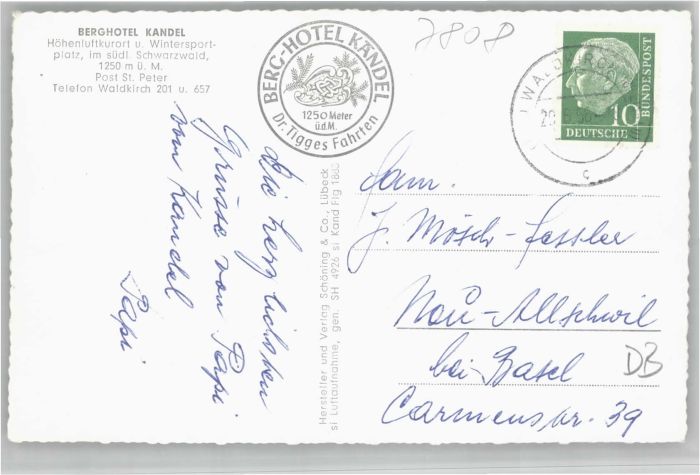 BERGHOTEL KANDEL
Höhenluftkurort u. Wintersport-
platz, im südl. Schwarzwald,
1250 m ü. M.
Post St. Peter
Telefon Waldkirch 201 u. 657
BERG-HOTEL KANDEL
1250 Meter
ü.d.M.
Dr. Tigges Fahrten
7808
DEUTSCHE BUNDESPOST
10
c
Die herzlichsten
Grüsse von Papi
vom Kandel
Papi
Hersteller und Verlag Schöning & Co., Lübeck
si Luftaufnahme, gen. SH 4926 si Kand Flg
Fam.
J. Mösch-Fessler
Neu-Allschwil
bei Basel
Carmenstr. 39
DB